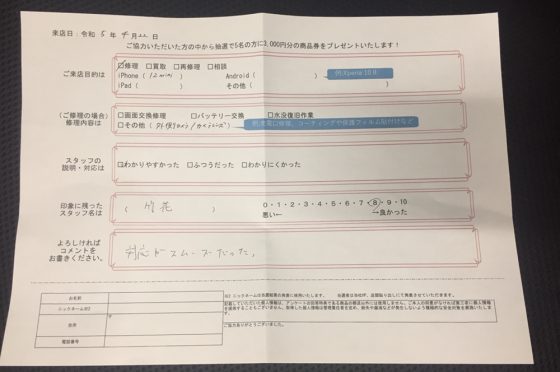 来店日:令和 5 年 4月22日
ご協力いただいた方の中から抽選で5名の方に3,000円分の商品券をプレゼントいたします!
ご来店目的は
□修理 □買取 □再修理 □相談
iPhone ( 12mini ) Android ( ) 例:Xperia 10 Ⅱ
iPad ( ) その他 ( )
(ご修理の場合)
修理内容は
□画面交換修理 □バッテリー交換 □水没復旧作業
□その他 (
スタッフの
説明・対応は
□わかりやすかった □ふつうだった □わかりにくかった
印象に残った
スタッフ名は
( 竹花 )
0・1・2・3・4・5・6・7・8・9・10
悪い← →良かった
よろしければ
コメントを
お書きください。
対応がスムーズだった。
お名前
ニックネーム※2
住所
〒
電話番号
ご協力ありがとうございました。